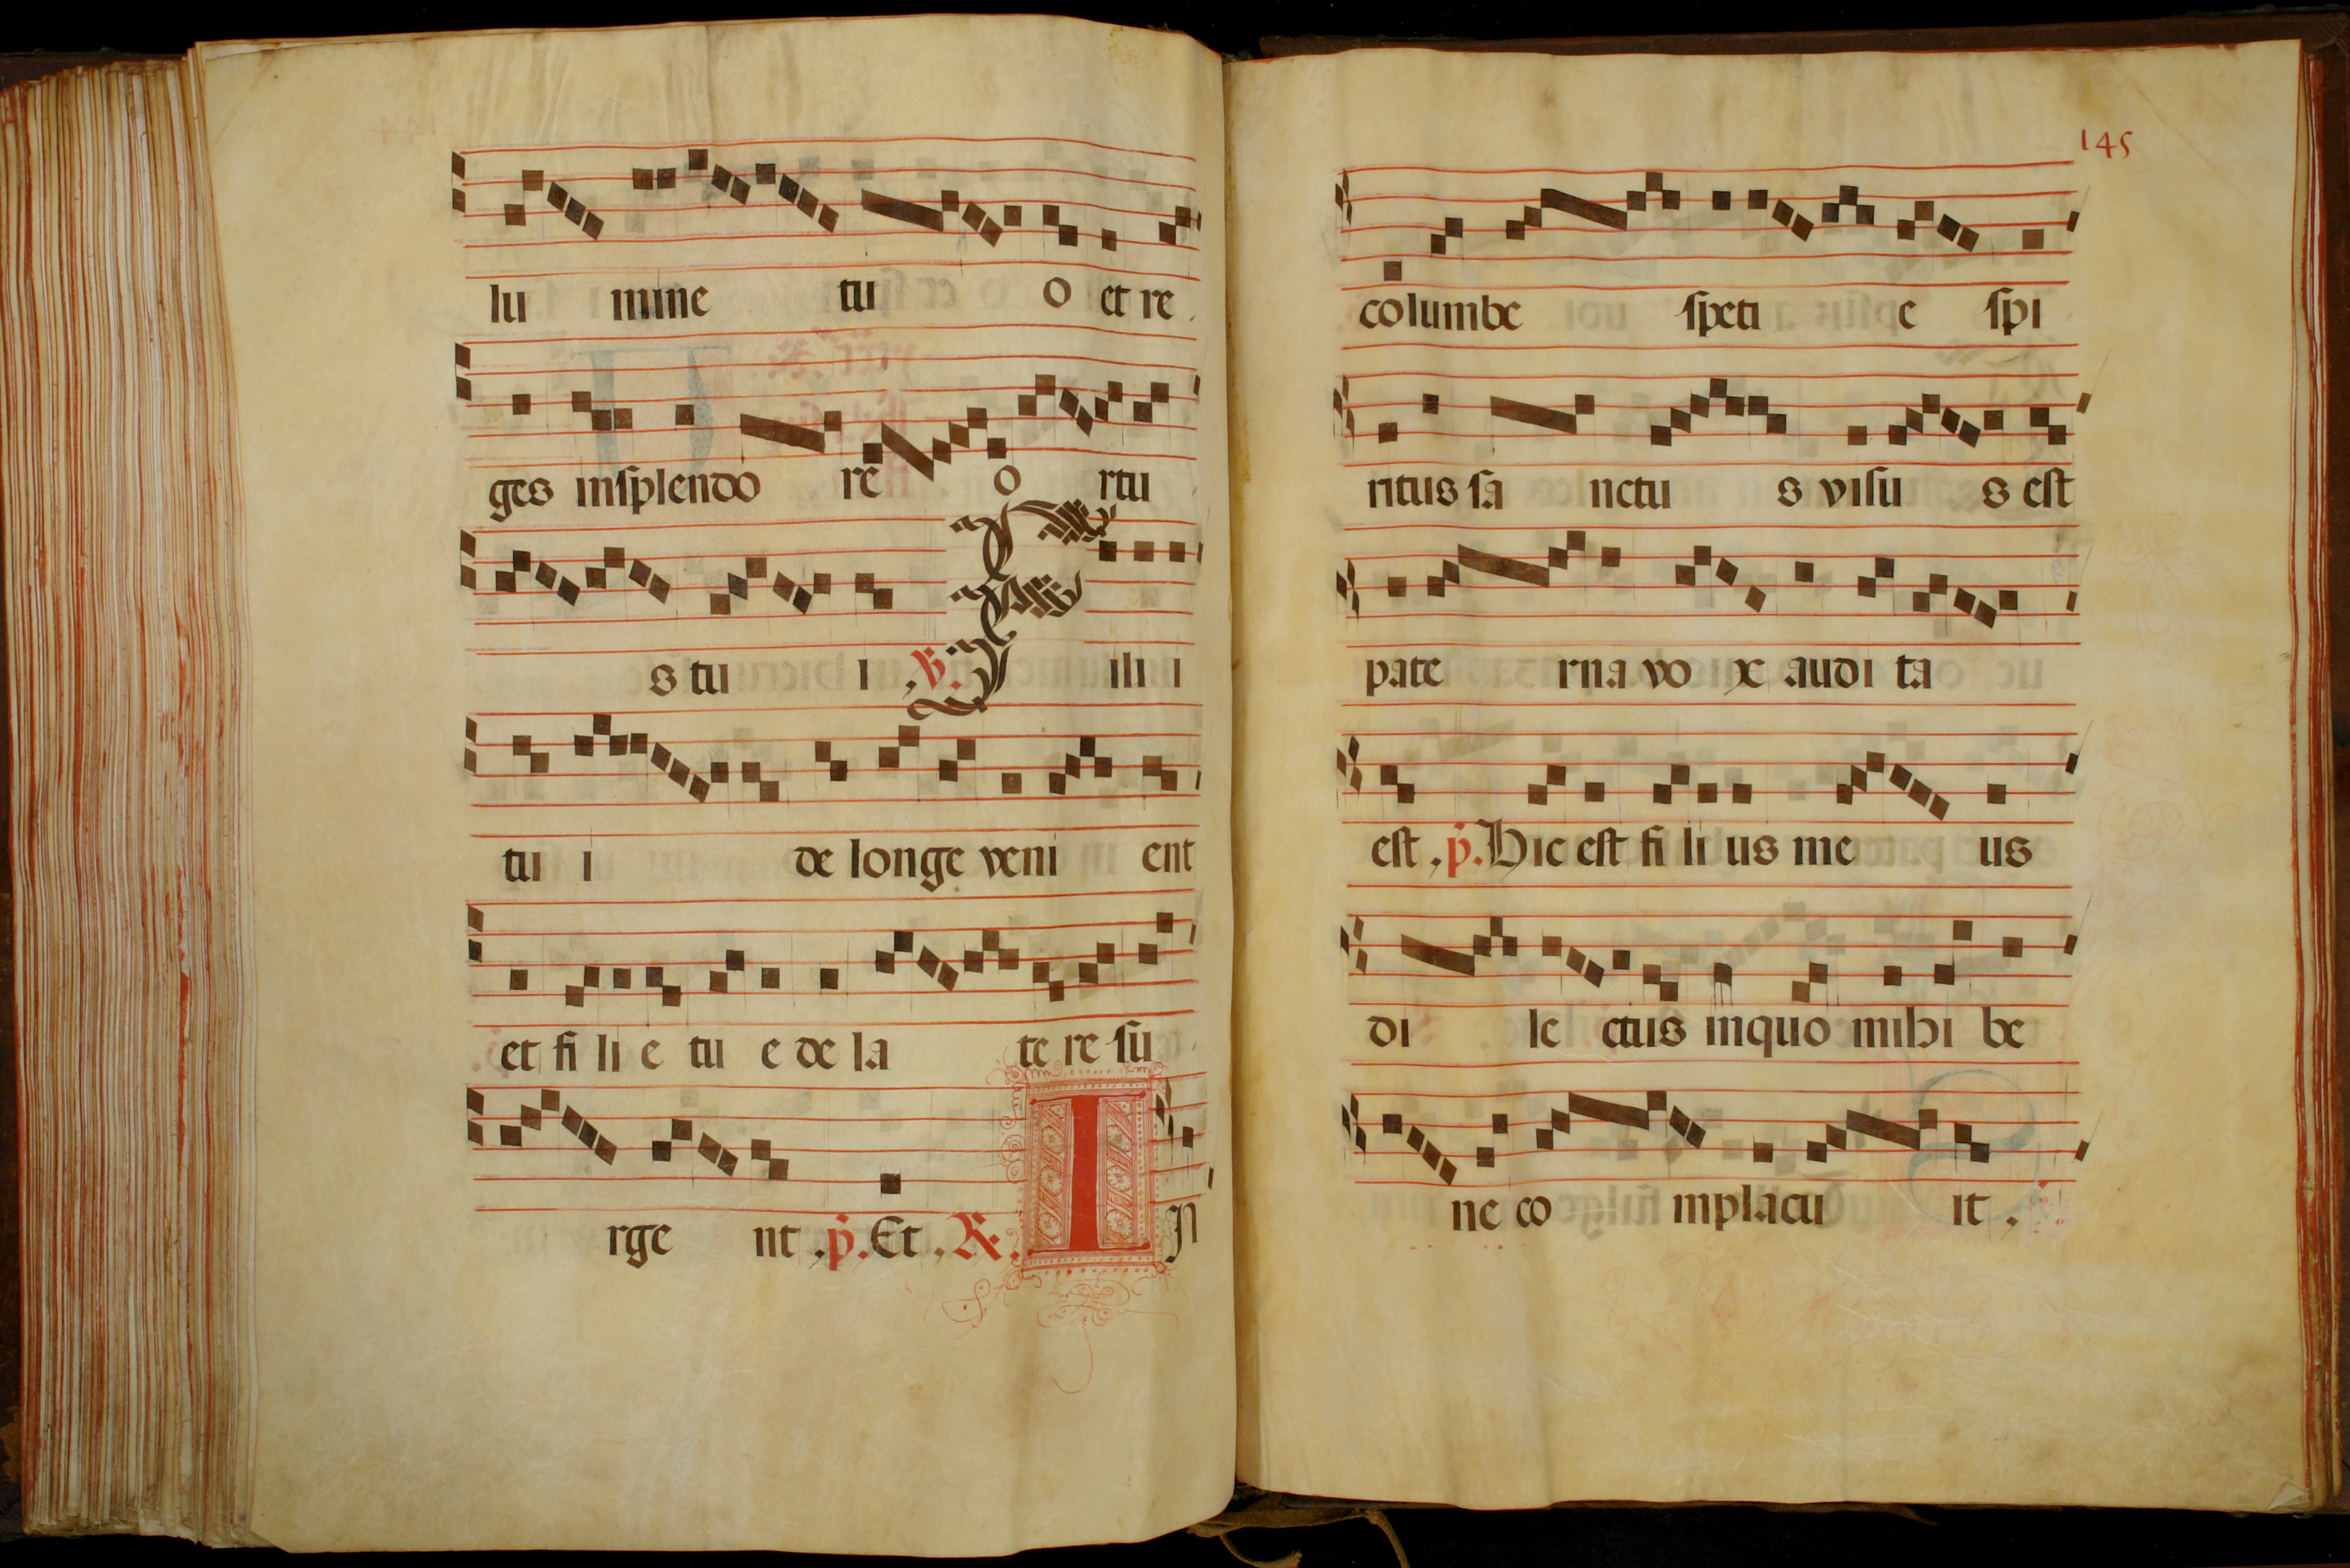 lu mine tu o et re
ges inſplendo re o rtu
s tu i .V. Filii
tu i de longe veni ent
et fi li e tu e de la te re ſu
rge nt .p. Et .R. In
145
columbe ſpeti e ſpi
ritus ſa nctu s viſu s eſt
pate rna vo x audi ta
eſt .p. Hic eſt fi li us me us
di le ctus inquo mihi be
ne co mplacu it .